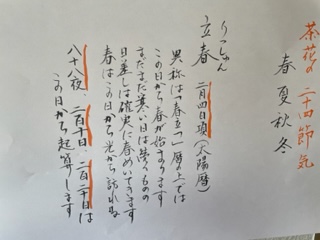 茶花の二十四節気
春夏秋冬
りっしゅん
立春 二月四日頃(太陽暦)
異称は「春立つ」暦の上では
この日から春が始まります
まだまだ寒い日は続くものの
日差しは確実に春めいてきます
春はこの日から光から訪れる
八十八夜、二百十日、二百二十日は
この日から起算します